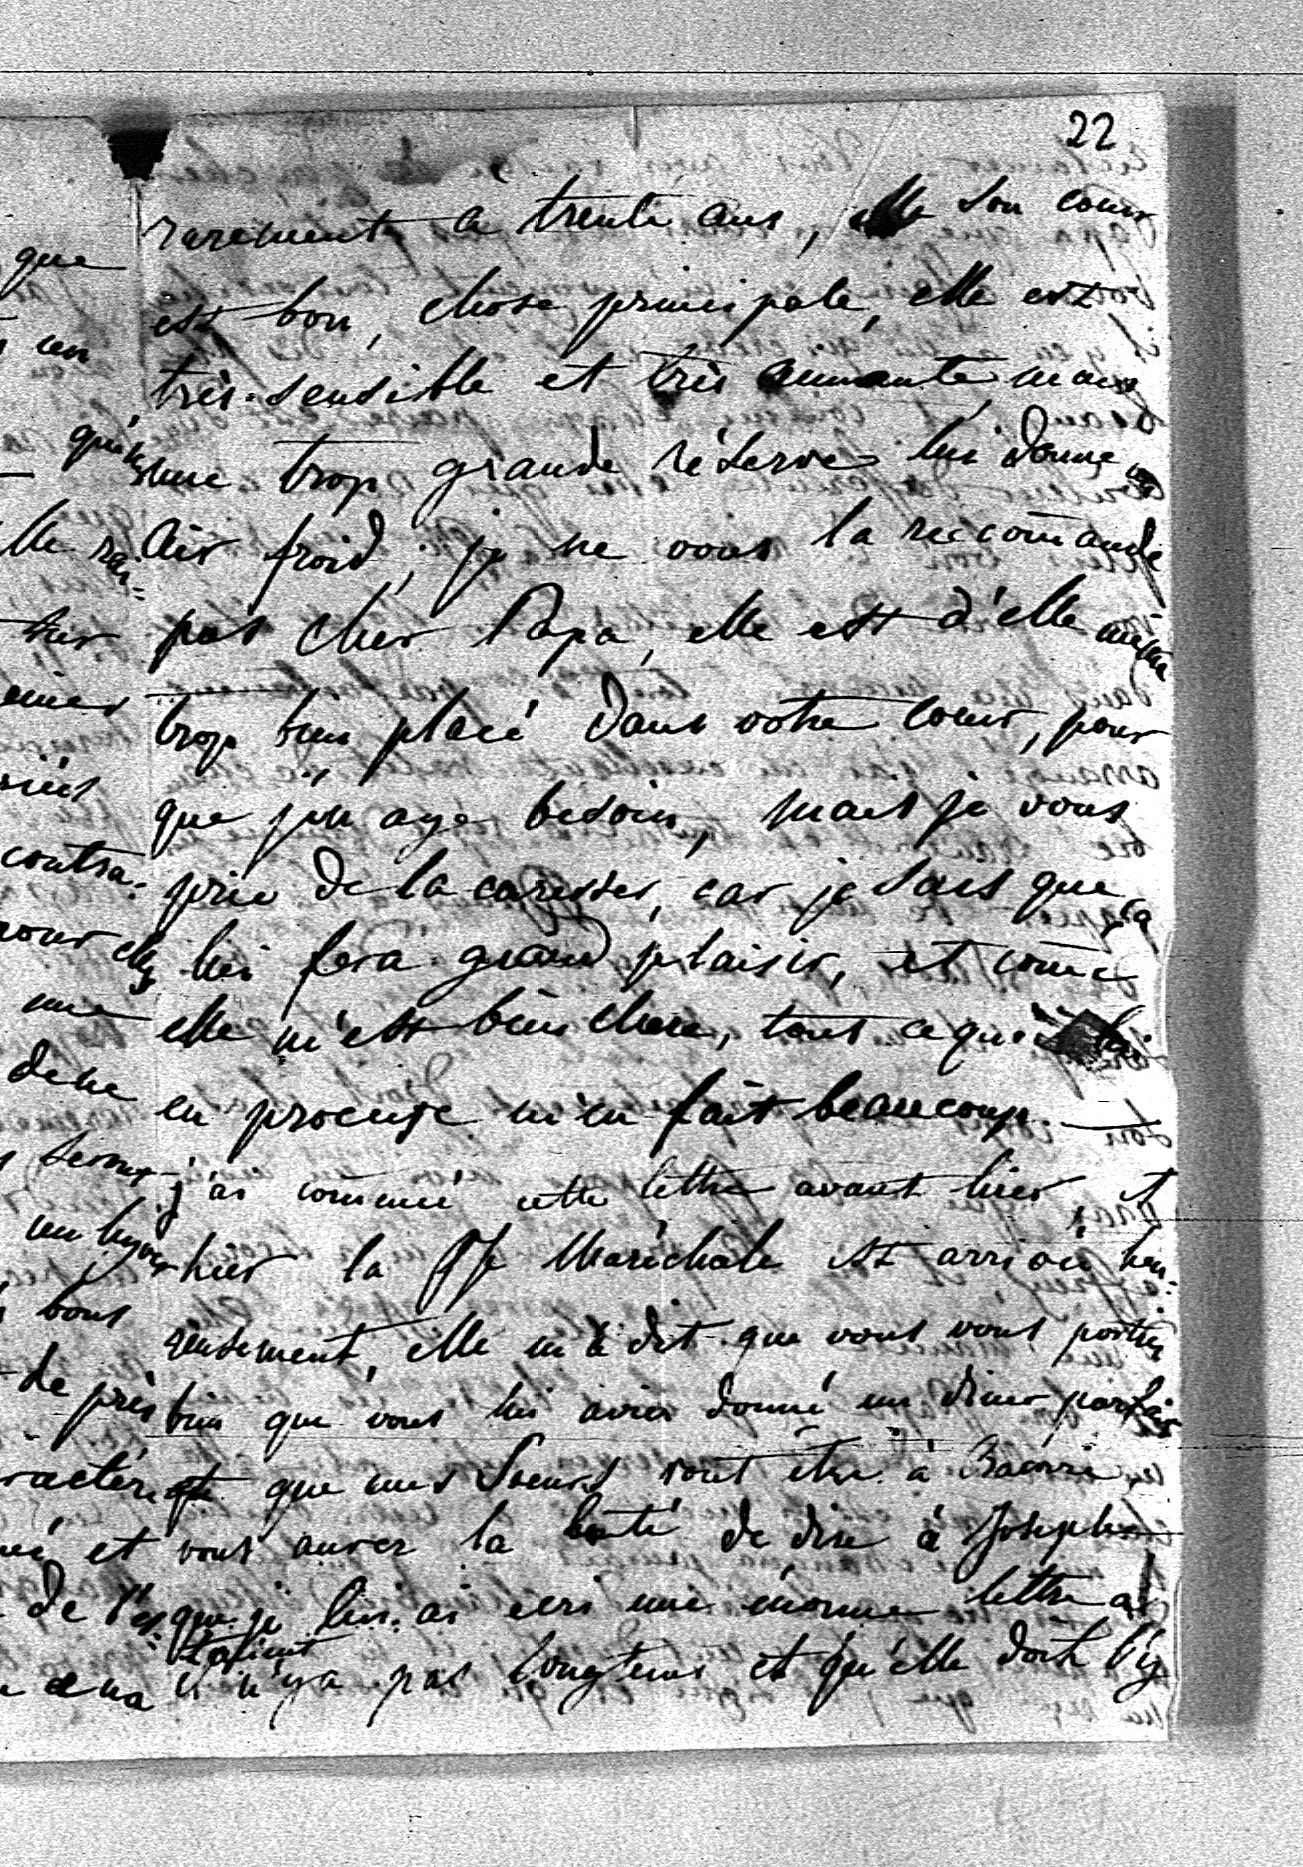 22
rarement a trente ans, son cœur
est bon, chose principale, elle est
très sensible et très aimante mais
une trop grande réserve lui donne un
air froid, je ne vous la reccomande
pas cher Papa, elle est d'elle même
trop bien placé dans votre cœur, pour
que j'en aye besoin, mais je vous
prie de la caresser, car je sais que ça
lui fera grand plaisir, et come
elle m'est bien chere, tout ce qui lui
en procure m'en fait beaucoup. —
j'ai comencé cette lettre avant hier et
hier la Maréchale est arrivée heu-
reusement, elle m'a dit que vous vous portiez
bien que vous lui aviez donné un diner parfait
et que mes Sœurs vont être à
vous aurez la bonté de dire à Josephe
que je lui ai ecri une énorme lettre a
il n'y a pas longtems et qu'elle doit l'y
que
un
contra-
une
de ne
un hyver
bons
de près
et